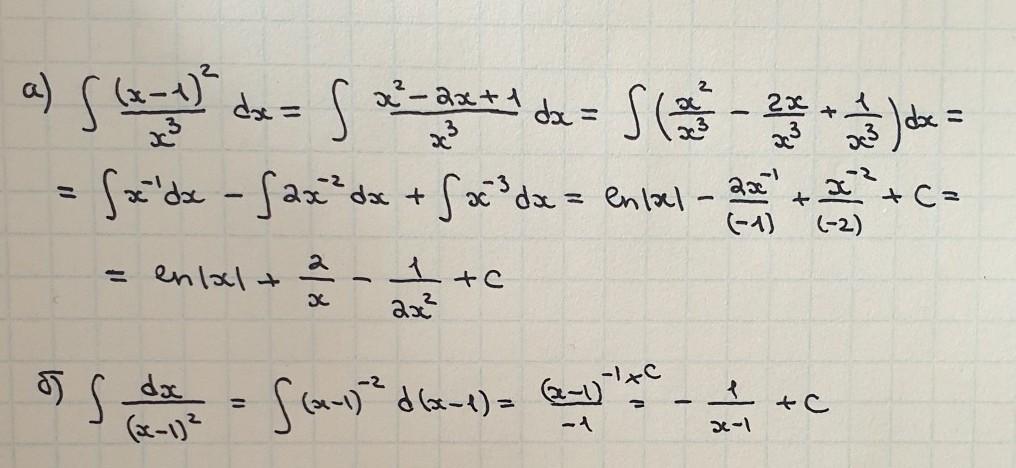 а) ∫ (x-1)²/x³ dx = ∫ (x²-2x+1)/x³ dx = ∫(x²/x³ - 2x/x³ + 1/x³)dx =
= ∫x⁻¹dx - ∫2x⁻²dx + ∫x⁻³dx = ln|x| - 2x⁻¹/(-1) + x⁻²/(-2) + C =
= ln|x| + 2/x - 1/2x² + C
б) ∫ dx/(x-1)² = ∫(x-1)⁻² d(x-1) = (x-1)⁻¹/-1 + C = - 1/x-1 + C